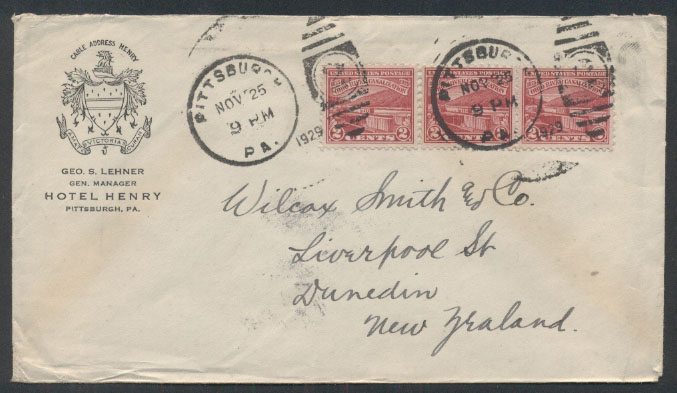 CABLE ADDRESS HENRY
VICTORIA
GEO. S. LEHNER
GEN. MANAGER
HOTEL HENRY
PITTSBURGH, PA.
PITTSBURGH
NOV 25
9 PM
PA.
1929
UNITED STATES POSTAGE
2 CENTS 2
PITTSBURGH
NOV 25
9 PM
PA.
1929
UNITED STATES POSTAGE
2 CENTS
UNITED STATES POSTAGE
2 CENTS
Wilcox Smith & Co.
Liverpool St
Dunedin
New Zealand.